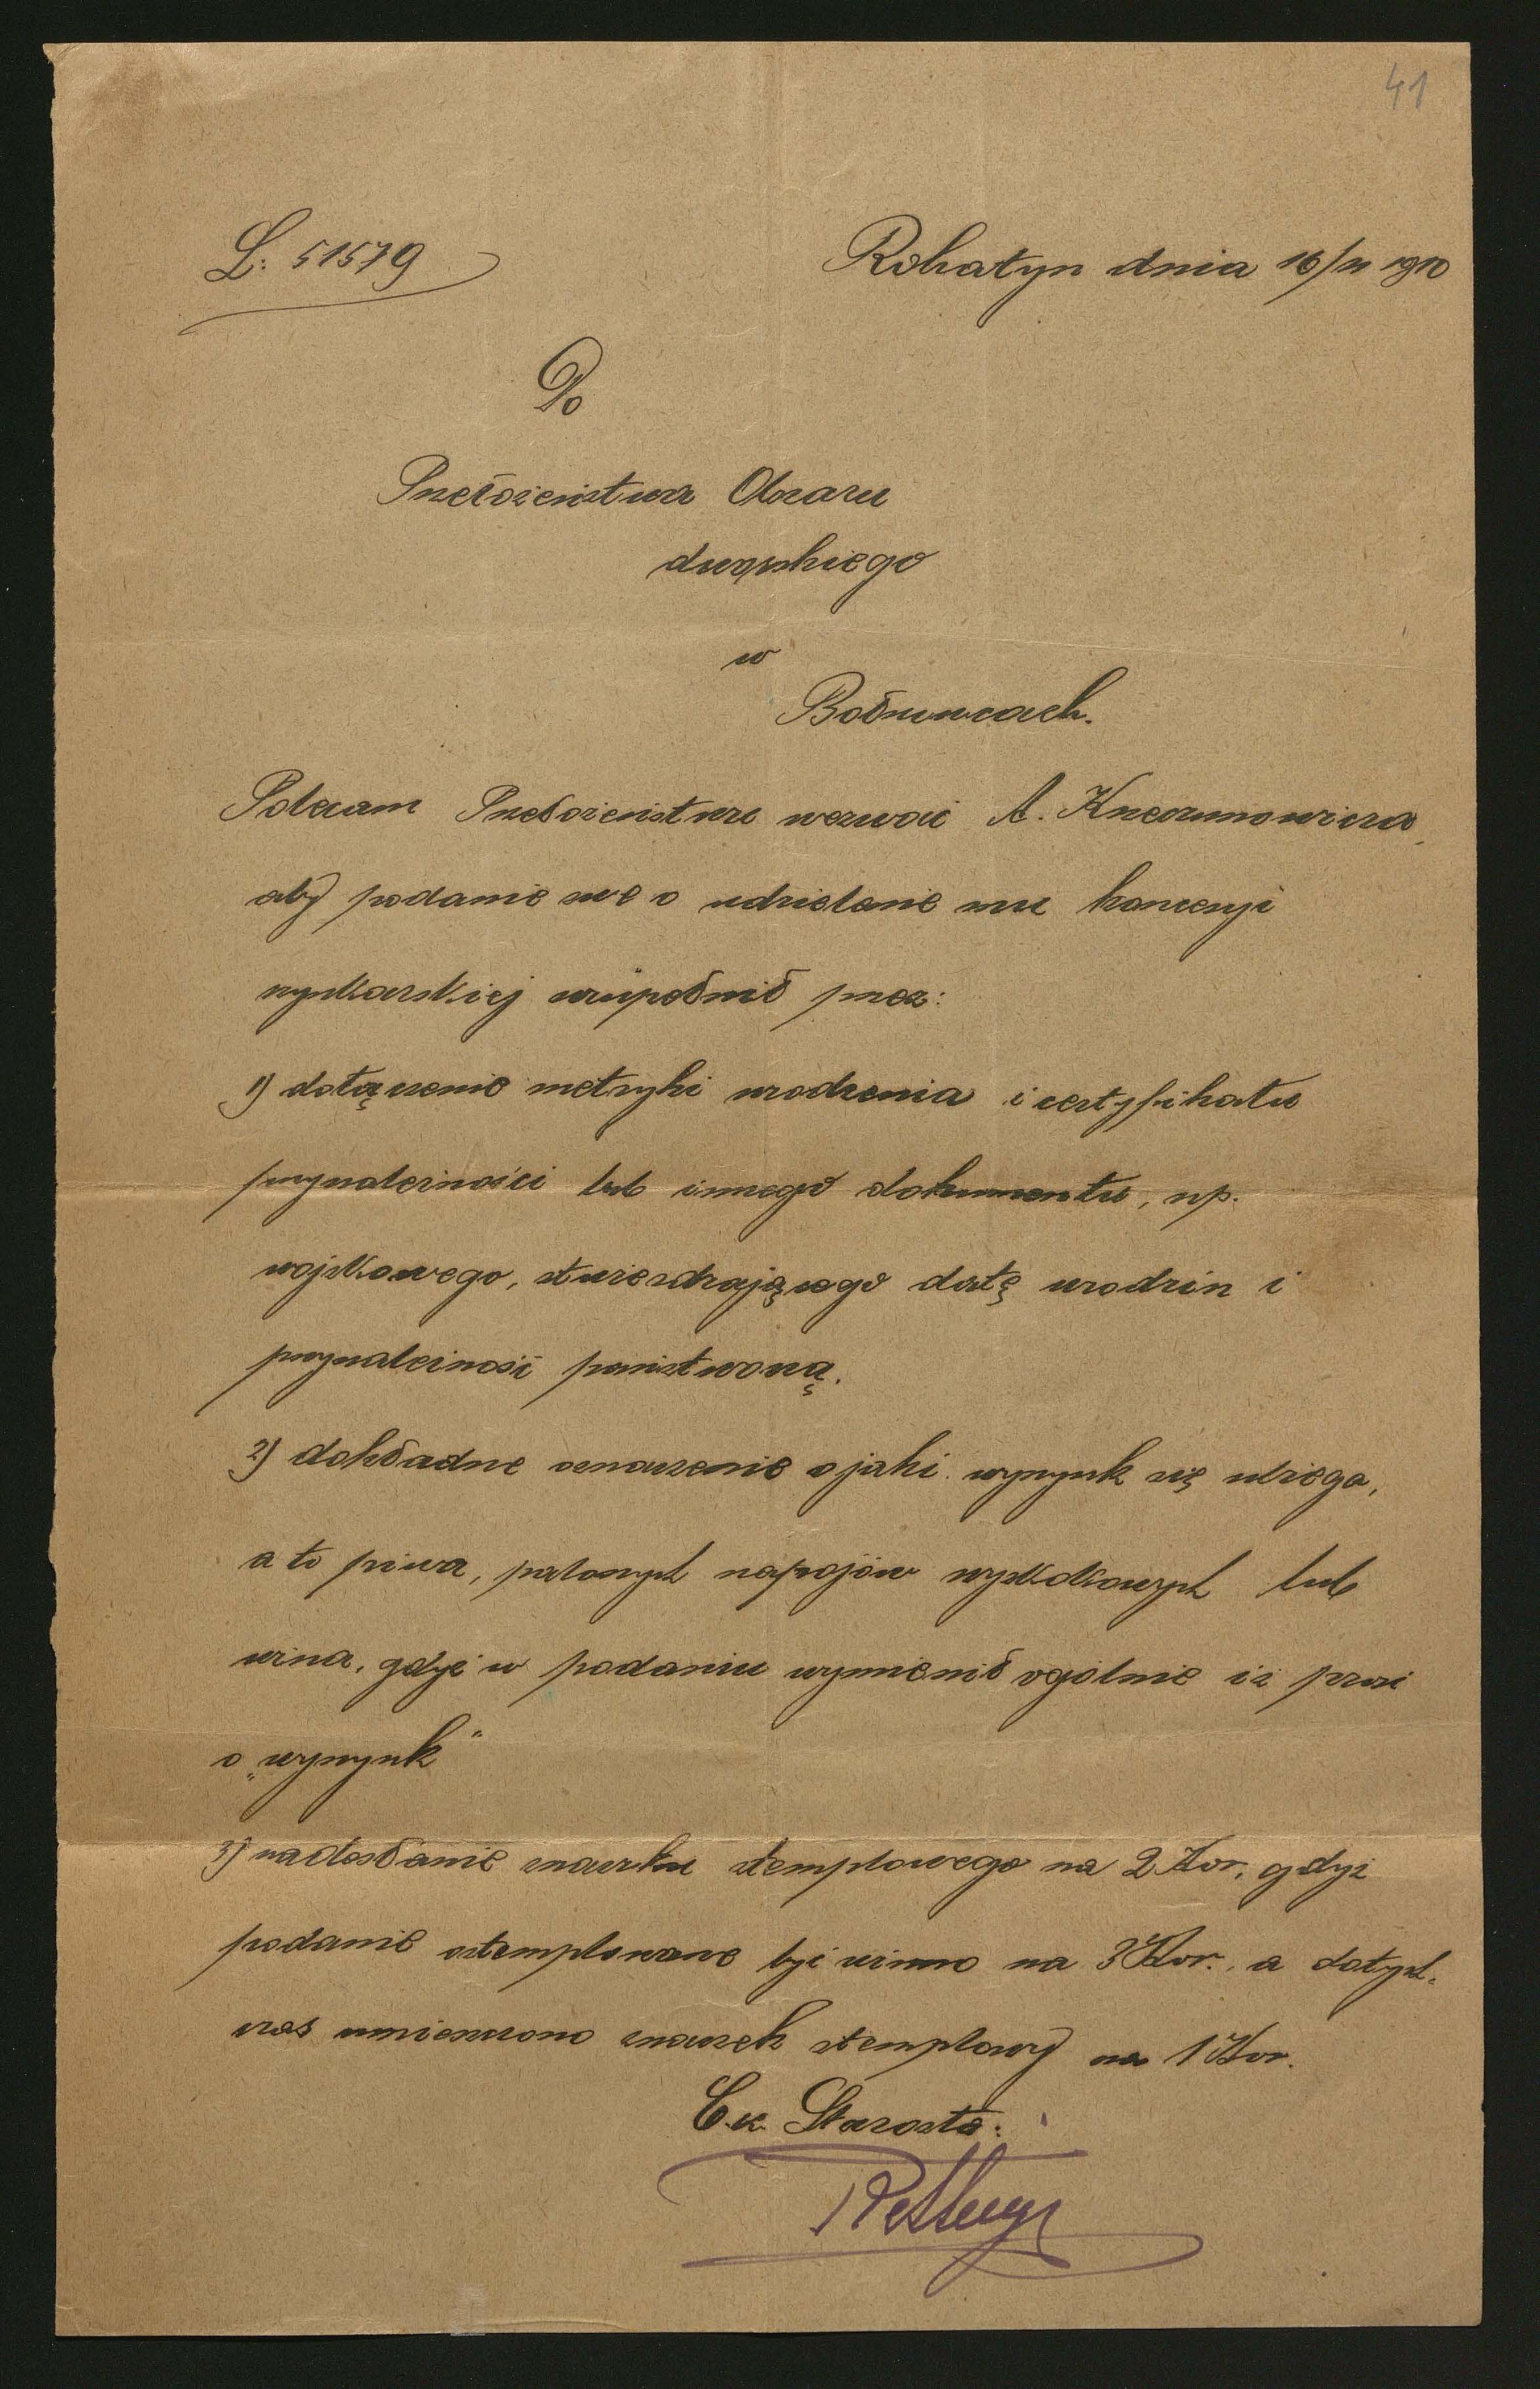 41
L: 51579
Rohatyn dnia 16/11 1910
Do
Przełożeństwa Obszaru
dworskiego
w
Bołszowcach.
Polecam Przełożeństwu wezwać A.
aby podanie swe o udzielenie mu koncesyi
szynkarskiej uzupełnił przez:
1) dołączenie metryki urodzenia i certyfikatu
przynależności lub innego dokumentu, np.
wojskowego, stwierdzającego datę urodzin i
przynależność państwową.
2) dokładne oznaczenie o jaki wyszynk się ubiega,
a to piwa, palonych napojów wyskokowych lub
wina, gdyż w podaniu wymienił ogólnie iż prosi
o „wyszynk"
3) nadesłanie znaczka stemplowego na 2 Kor, gdyż
podanie ostemplowane być winno na 3 Kor. a dotych-
czas umieszczono znaczek stemplowy na 1 Kor.
C.k. Starosta: